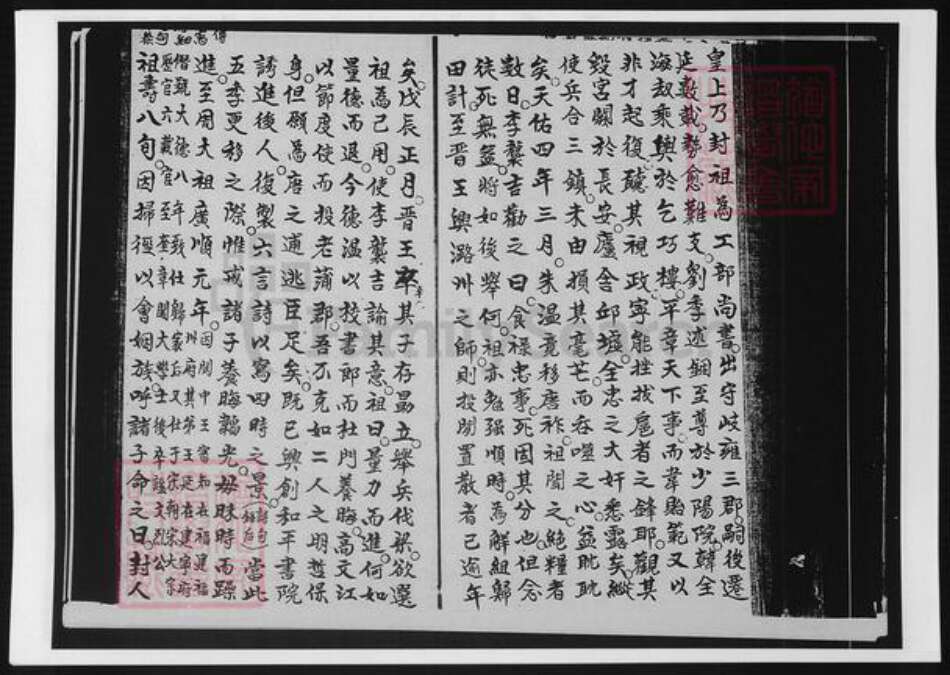 皇上乃封祖為工部尚書出守岐雍三郡嗣後遷
延數載勢愈難支劉季述錮至尊於少陽院韓全
海劫乘輿於乞巧樓平章天下事而韋貽範又以
非才起復醜其視政寧能挫拔扈者之鋒耶觀其
毀宮闕於長安廬舍邱墟全忠之大奸悉露矣縱
使兵合三鎮未由損其毫芒而吞噬之心益眈眈
矣天佑四年三月朱溫竟移唐祚祖聞之絕糧者
數日李襲吉勸之曰食祿忠事死固其分也但念
徒死無益將如後舉何祖亦勉强順時為解組歸
田計至晋王興潞州之師則投閒置散者已逾年
矣戊辰正月晋王卒其子存勗立舉兵伐梁欲選
祖為己用使李襲吉諭其意祖曰量力而進何如
量德而退今德溫以校書郎而杜門養晦高文江
以節度使而投老蒲郡吾不克如二人之明哲保
身但願為唐之逋逃臣足矣既已興創和平書院
誘進後人復製六言詩以寫四時之景當此
五季更移之際惟戒諸子養晦韜光毋昧時而躁
進至周大祖廣順元年因閩中王審知在福建福州府其弟王延在建寧府
僭號大德八年致仕歸家后又仕于宋朝宋大宗
歷官六載官至奎章閣大學士後卒謚文烈公
祖壽八旬因掃徑以會姻族呼諸子命之曰對人